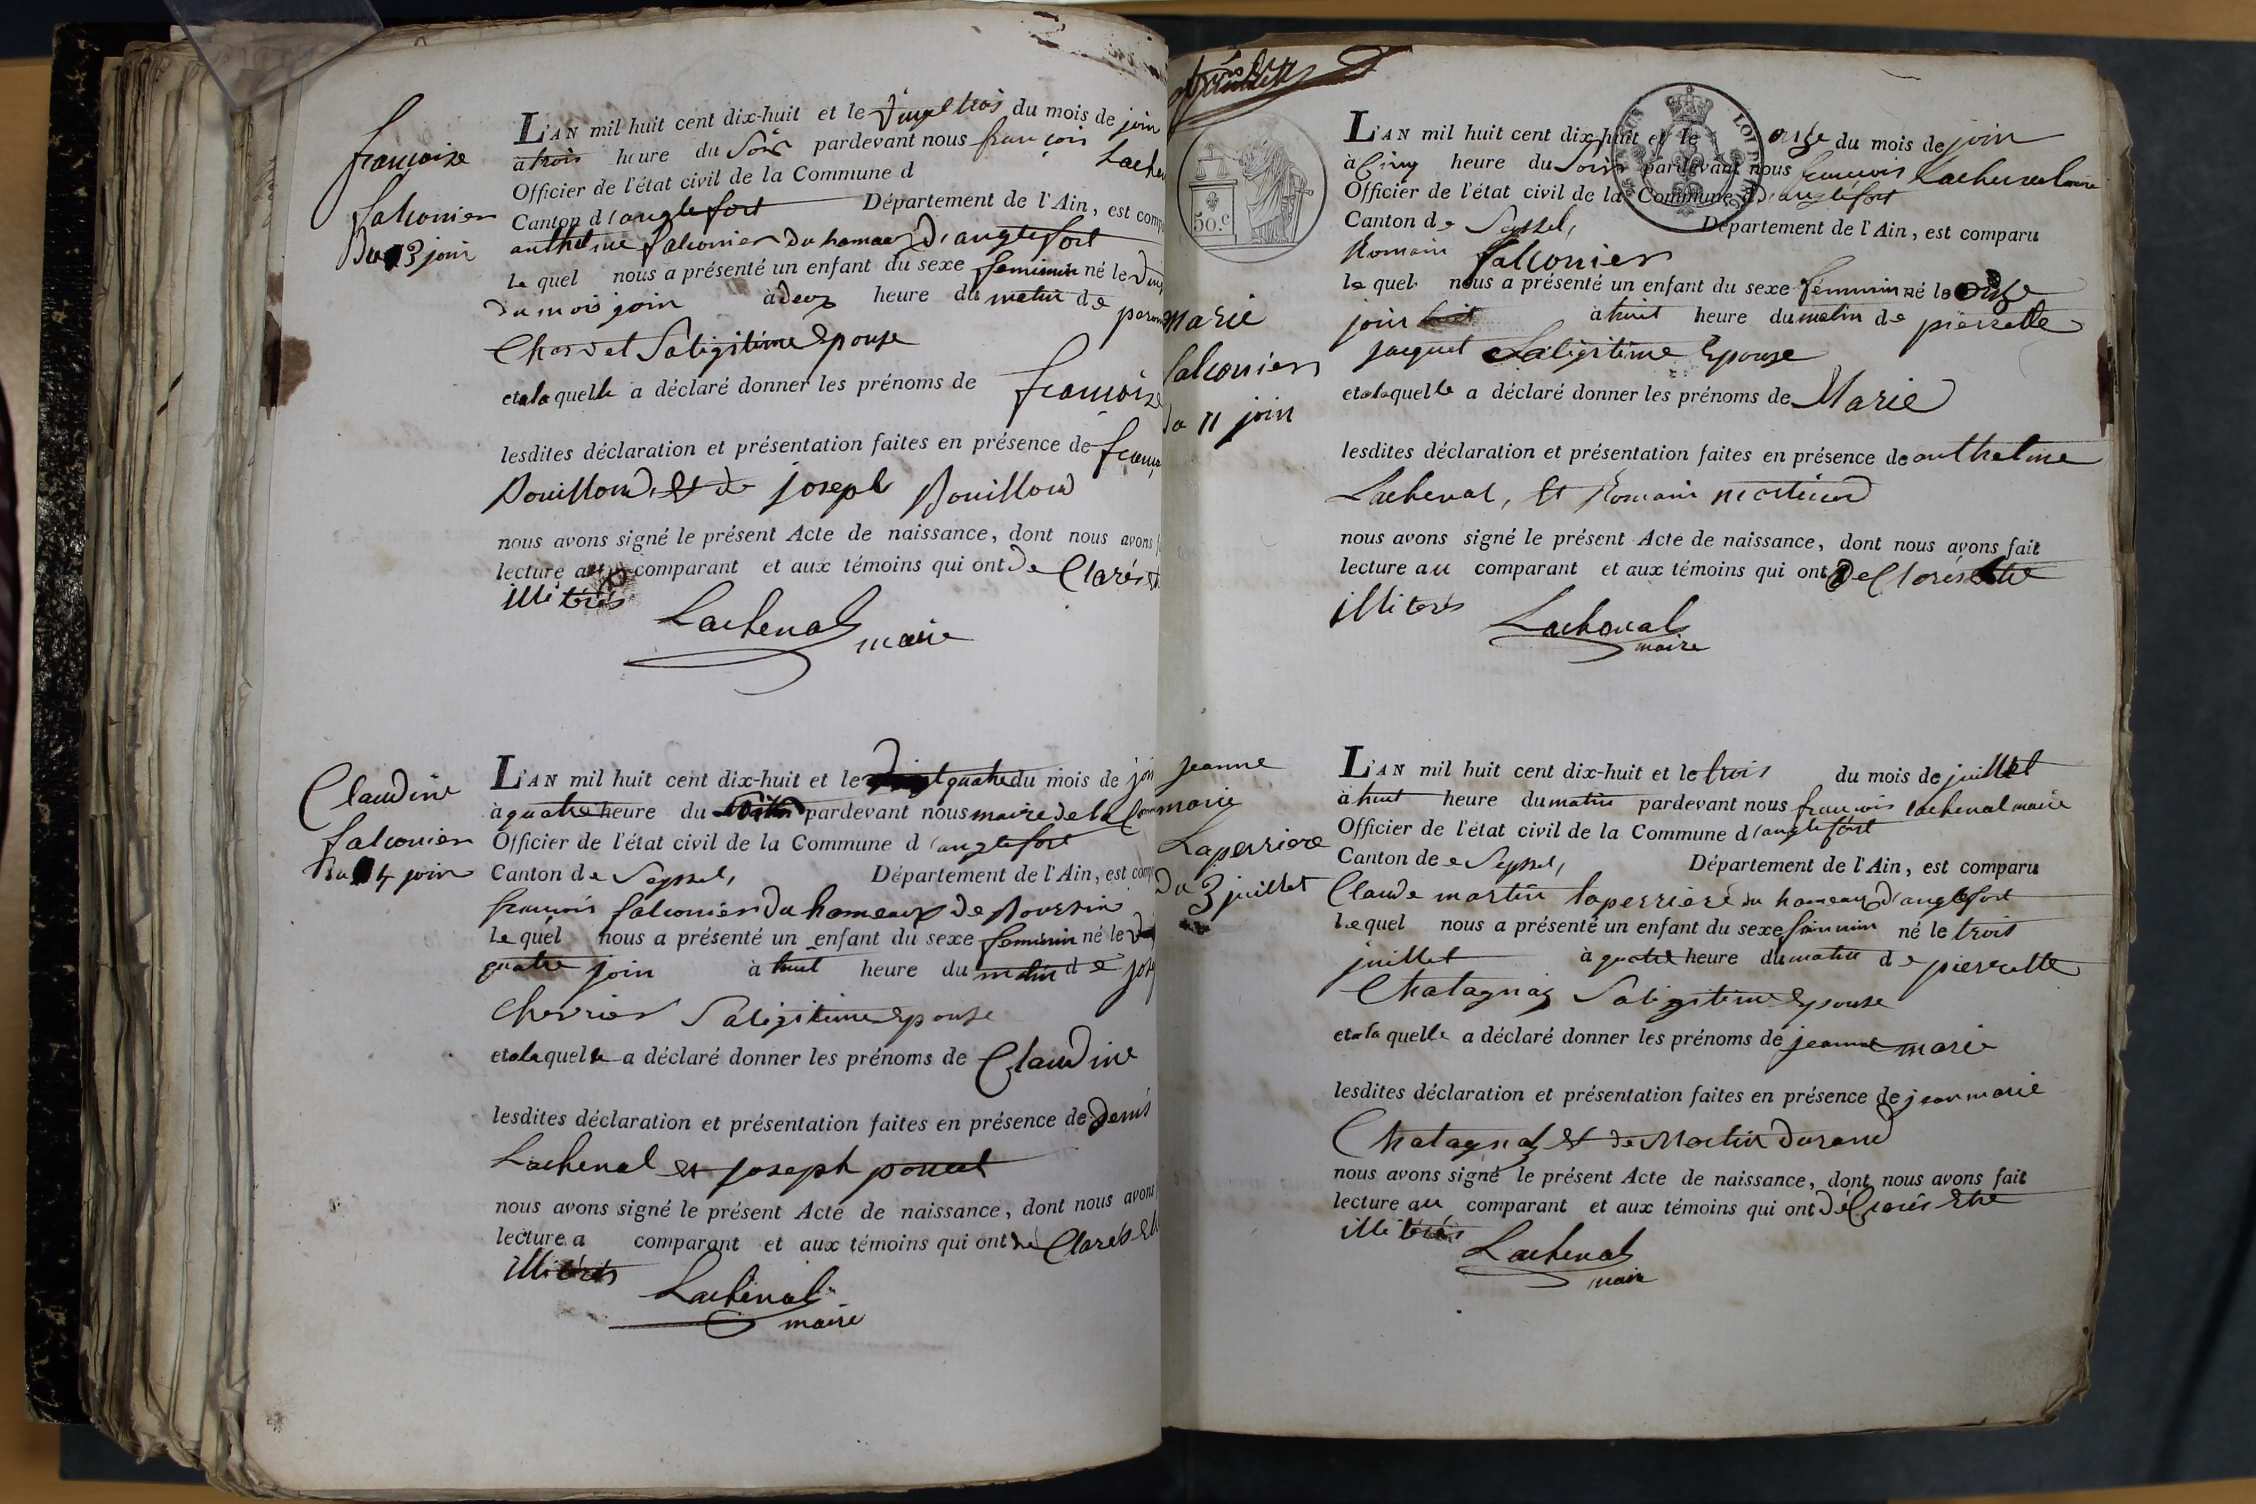 françoise
falconier
du 23 join
L'AN mil huit cent dix-huit et le vingt trois du mois de join
à trois heure du soir pardevant nous françois Lachen
Officier de l'état civil de la Commune d
Canton d'anglefort Département de l'Ain, est comp
anthelme falconier du hameau d'anglefort
le quel nous a présenté un enfant du sexe feminin né le vin
du mois join à deux heure du matin de peron
Chardet Saligitime Epouse
et a la quelle a déclaré donner les prénoms de françoise
lesdites déclaration et présentation faites en présence de franç
Bouillond et de joseph Bouillond
nous avons signé le présent Acte de naissance, dont nous avons f
lecture au comparant et aux témoins qui ont de Clarés et
illiterés
Lachenal
maire
Claudine
falconier
du 24 join
L'AN mil huit cent dix-huit et le vingt quatre du mois de join
à quatre heure du pardevant nous maire de la Comm
Officier de l'état civil de la Commune d'anglefort
Canton de Seyssel, Département de l'Ain, est comp
françois falconier du hameaux de Boursin
le quel nous a présenté un enfant du sexe feminin né le vin
quatre join à huit heure du matin de jos
Cherrier Saligitime Epouse
et a la quelle a déclaré donner les prénoms de Claudine
lesdites déclaration et présentation faites en présence de denis
Lachenal et joseph poncet
nous avons signé le présent Acte de naissance, dont nous avons
lecture a comparant et aux témoins qui ont dé Clarés Et
illiterés
Lachenal
maire
50 c
LOI
marie
falconier
du 11 join
L'AN mil huit cent dix-huit et le onze du mois de join
à Cinq heure du Soir pardevant nous françois Lachenal maire
Officier de l'état civil de la Commune d'anglefort
Canton de Seyssel, Département de l'Ain, est comparu
Romain falconier
le quel nous a présenté un enfant du sexe féminin né le onze
join à huit heure du matin de pierrette
jacquet Saligitime Epouse
et a la quelle a déclaré donner les prénoms de Marie
lesdites déclaration et présentation faites en présence de anthelme
Lachenal, Et Romain martinod
nous avons signé le présent Acte de naissance, dont nous avons fait
lecture au comparant et aux témoins qui ont de Clorés Etre
illiterés
Lachenal
maire
jeanne
marie
Laperriere
du 3 juillet
L'AN mil huit cent dix-huit et le trois du mois de juillet
à huit heure du matin pardevant nous françois lachenal maire
Officier de l'état civil de la Commune d'anglefort
Canton de Seyssel, Département de l'Ain, est comparu
Claude martin laperriere du hameaux d'anglefort
le quel nous a présenté un enfant du sexe féminin né le trois
juillet à quatre heure du matin de pierrette
Chatagnaz Saligitime Epouse
et a la quelle a déclaré donner les prénoms de jeanne marie
lesdites déclaration et présentation faites en présence de jean marie
Chatagnaz Et de Martin durand
nous avons signé le présent Acte de naissance, dont nous avons fait
lecture au comparant et aux témoins qui ont dé Clarés Etre
illiterés
Lachenal
maire